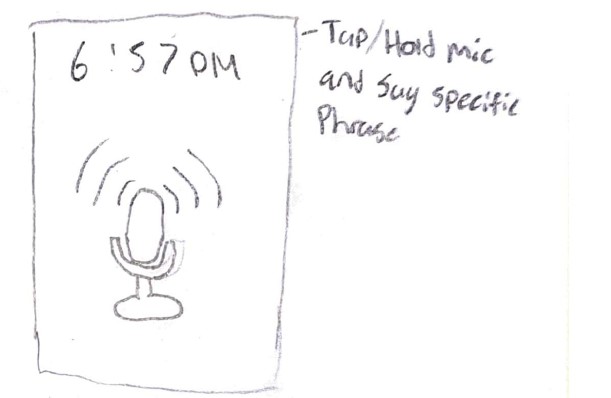 6:57 PM
-Tap/Hold mic
and Say specific
Phrase